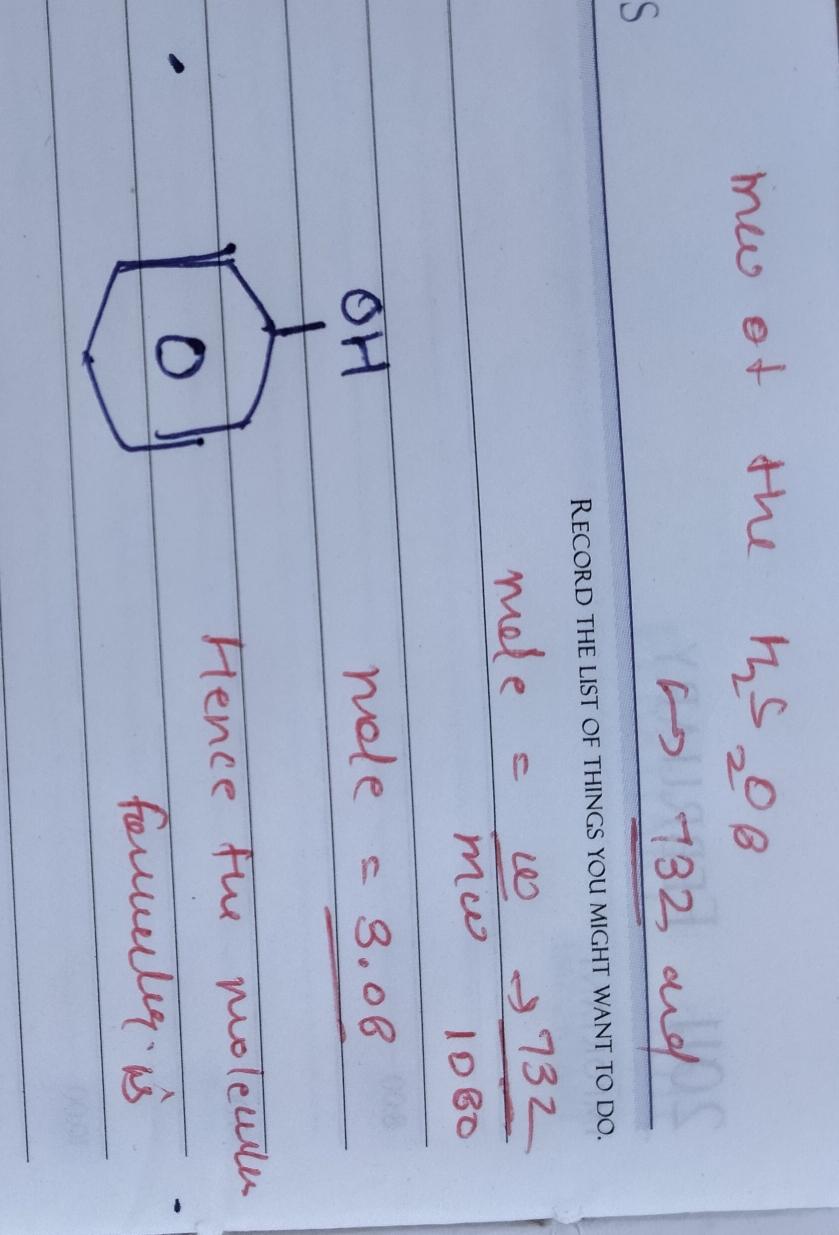 S
mw of the H2S2O8
↳ 732, and
RECORD THE LIST OF THINGS YOU MIGHT WANT TO DO.
mole = w → 732
mw 1080
mole = 3.08
OH
Hence the molecular
formula is